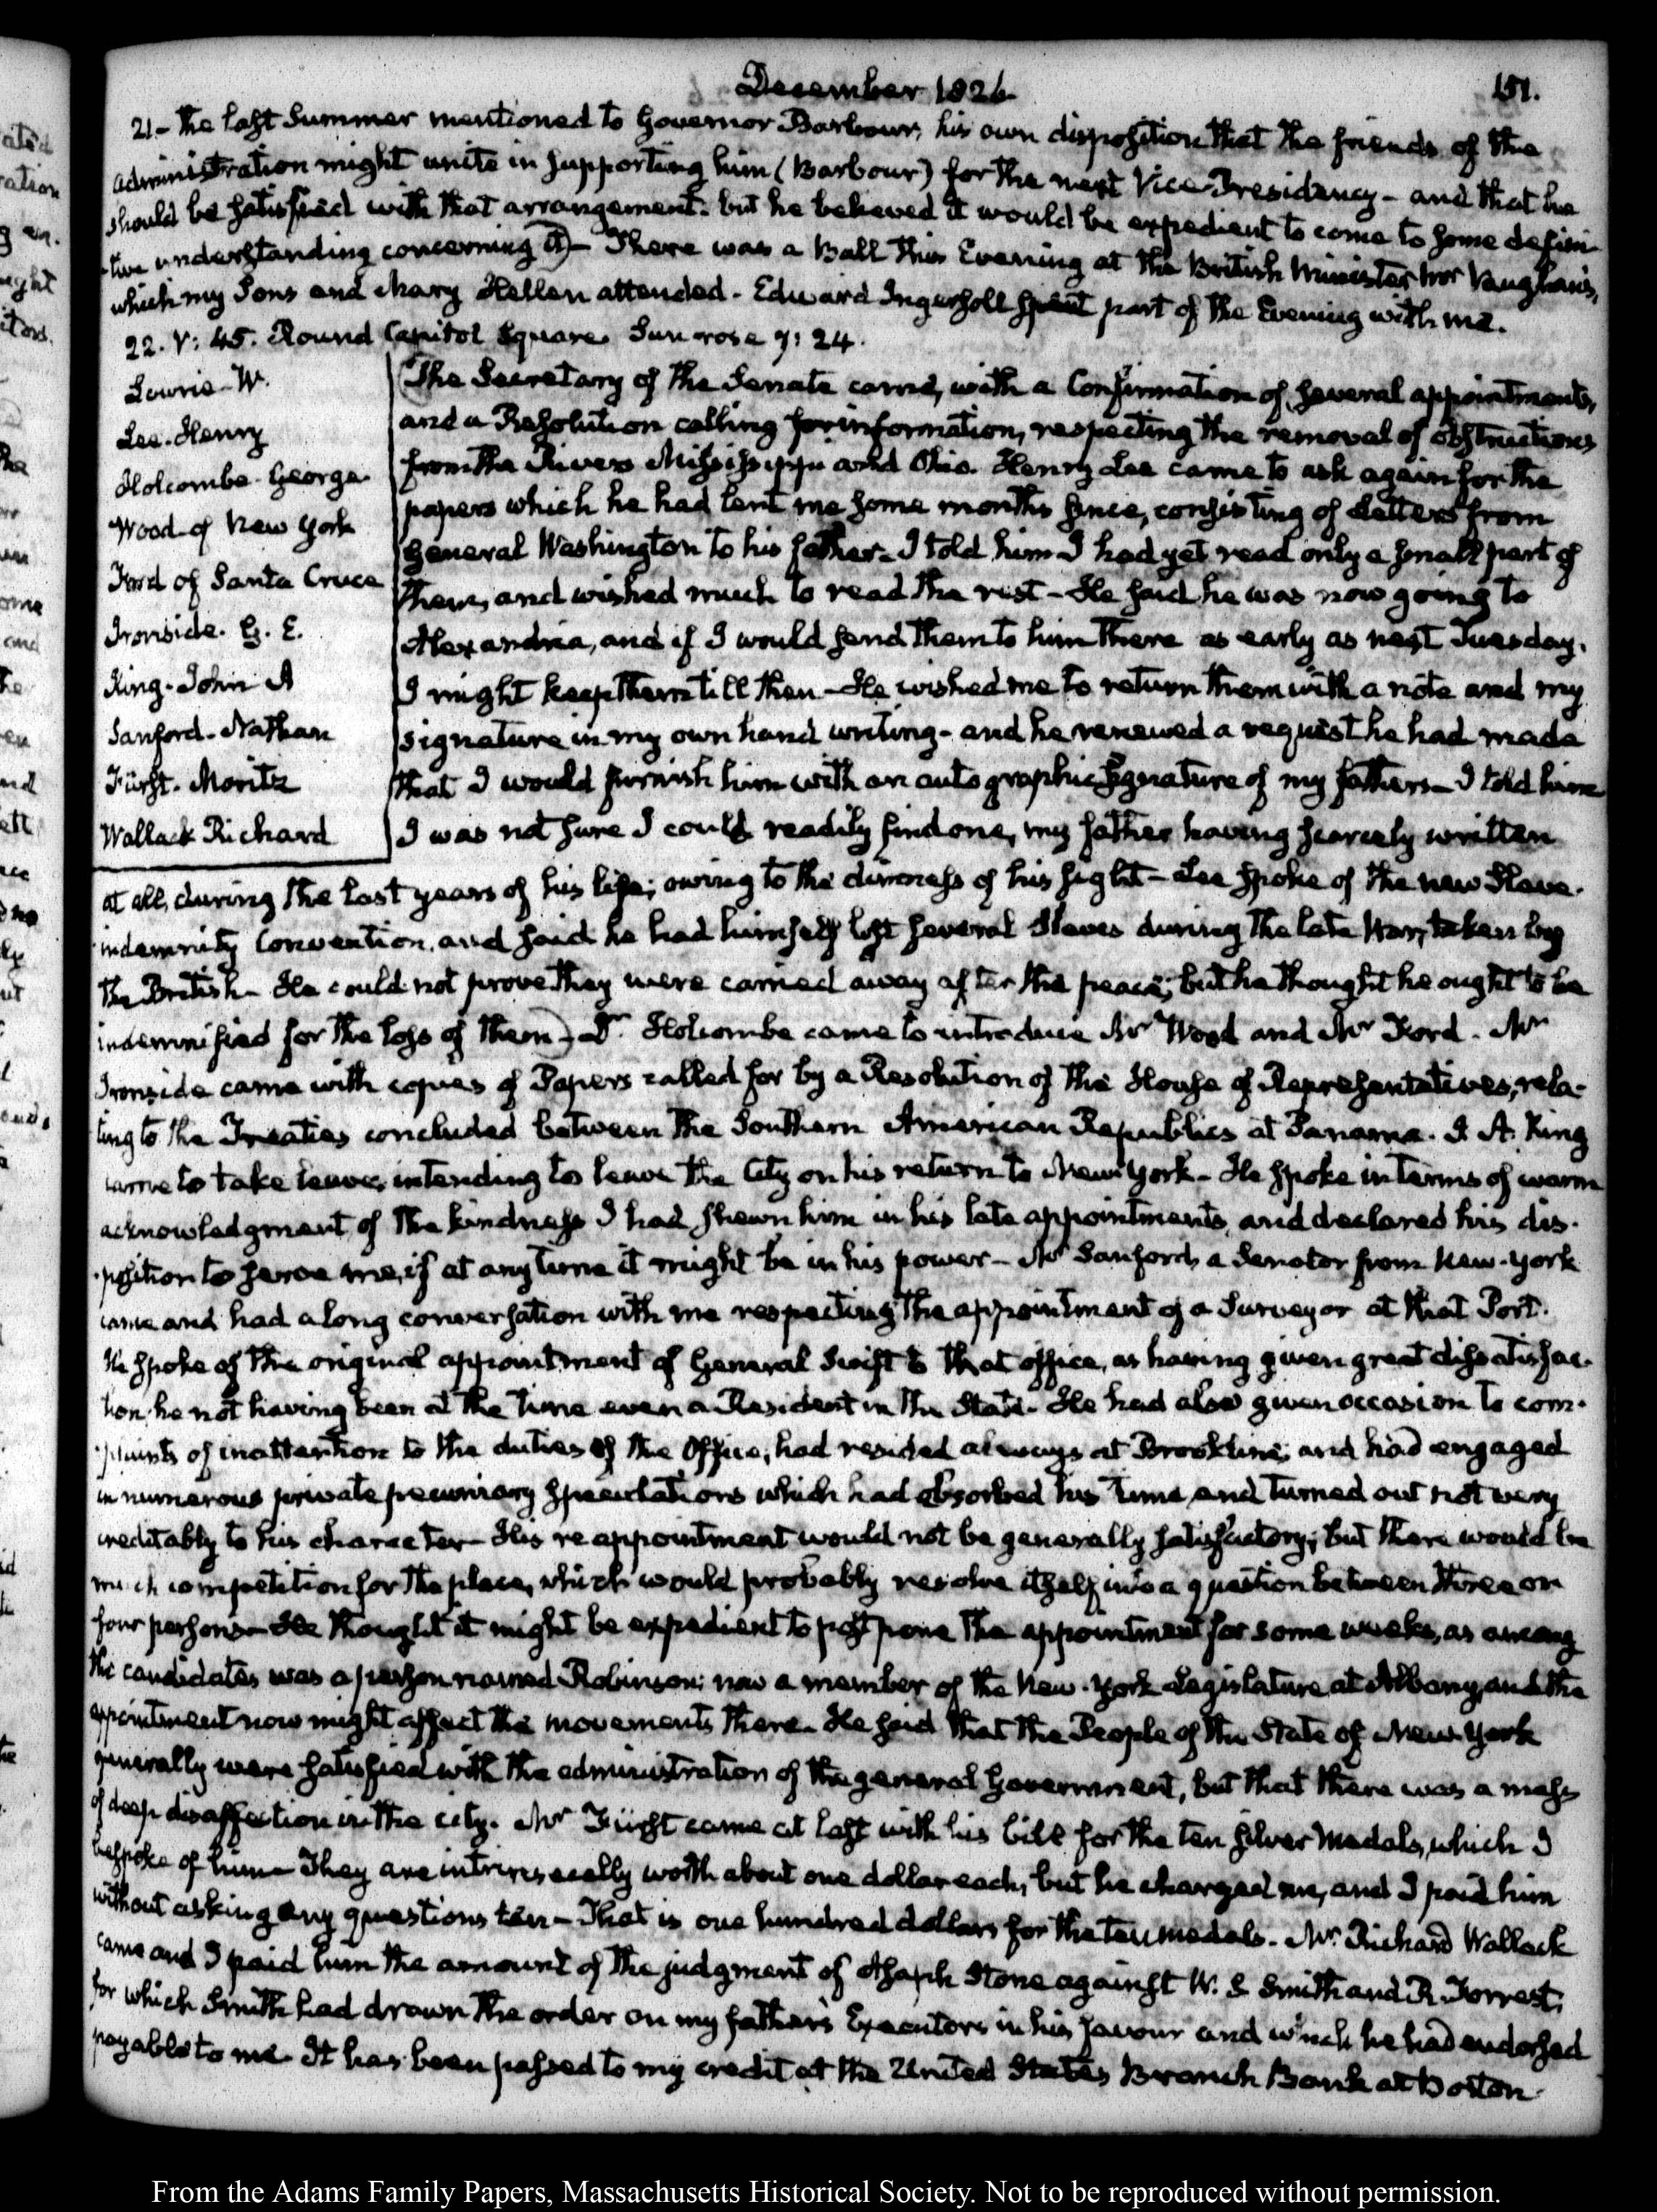 December 1826
151.
21 - the last Summer mentioned to Governor Barbour, his own disposition that the friends of the
administration might unite in supporting him (Barbour) for the next Vice-Presidency - and that he
should be satisfied with that arrangement. but he believed it would be expedient to come to some defini-
-tive understanding concerning it) - There was a Ball this Evening at the British Minister Mr Vaughan's,
which my Sons and Mary Hellen attended - Edward Ingersoll spent part of the Evening with me.
22. V: 45. Round Capitol Square. Sun rose 7: 24.
Lowrie - W.
Lee. Henry
Holcombe - George
Wood of New York
Ford of Santa Cruce
Ironside. G. E.
King - John A
Sanford - Nathan
Fürst. Moritz
Wallack Richard
(The Secretary of the Senate came, with a Confirmation of several appointments,
and a Resolution calling for information, respecting the removal of obstructions
from the Rivers Mississippi and Ohio. Henry Lee came to ask again for the
papers which he had lent me some months since, consisting of Letters from
General Washington to his father - I told him I had yet read only a small part of
them, and wished much to read the rest - He said he was now going to
Alexandria, and if I would send them to him there as early as next Tuesday,
I might keep them till then - He wished me to return them with a note and my
signature in my own hand writing - and he renewed a request he had made
that I would furnish him with an autographic signature of my father's - I told him
I was not sure I could readily find one, my father having scarcely written
at all, during the last years of his life; owing to the dimness of his sight - Lee spoke of the new Slave-
indemnity Convention, and said he had himself lost several Slaves during the late War, taken by
the British - He could not prove they were carried away after the peace; but he thought he ought to be
indemnified for the loss of them) - Dr. Holcombe came to introduce Mr Wood and Mr Ford. Mr
Ironside came with copies of Papers called for by a Resolution of the House of Representatives, rela-
ting to the Treaties concluded between the Southern American Republics at Panama. J. A. King
came to take leave, intending to leave the City on his return to New York - He spoke in terms of warm
acknowledgment of the kindness I had shewn him in his late appointments, and declared his dis-
-position to serve me, if at any time it might be in his power - Mr Sanford, a Senator from New-York
came and had a long conversation with me respecting the appointment of a Surveyor at that Port.
He spoke of the original appointment of General Swift to that office, as having given great dissatisfac-
tion, he not having been at the time even a Resident in the State. He had also given occasion to com-
-plaints of inattention to the duties of the Office; had resided always at Brookline; and had engaged
in numerous private pecuniary speculations which had absorbed his time, and turned out not very
creditably to his character - His reappointment would not be generally satisfactory; but there would be
much competition for the place, which would probably resolve itself into a question between three or
four persons - He thought it might be expedient to postpone the appointment for some weeks, as among
the candidates was a person named Robinson; now a member of the New-York Legislature at Albany, and the
appointment now might affect the movements there. He said that the People of the State of New York
generally were satisfied with the administration of the general Government, but that there was a mass
of deep disaffection in the city. Mr Fürst came at last with his bill for the ten silver Medals, which I
bespoke of him - They are intrinsecally worth about one dollar each, but he charged me, and I paid him
without asking any questions ten - That is one hundred dollars for the ten medals. Mr. Richard Wallack
came and I paid him the amount of the judgment of Asaph Stone against W. S. Smith and R. Forrest,
for which Smith had drawn the order on my father's Executors in his favour and which he had endorsed
payable to me. It has been passed to my credit at the United States Branch Bank at Boston.
From the Adams Family Papers, Massachusetts Historical Society. Not to be reproduced without permission.